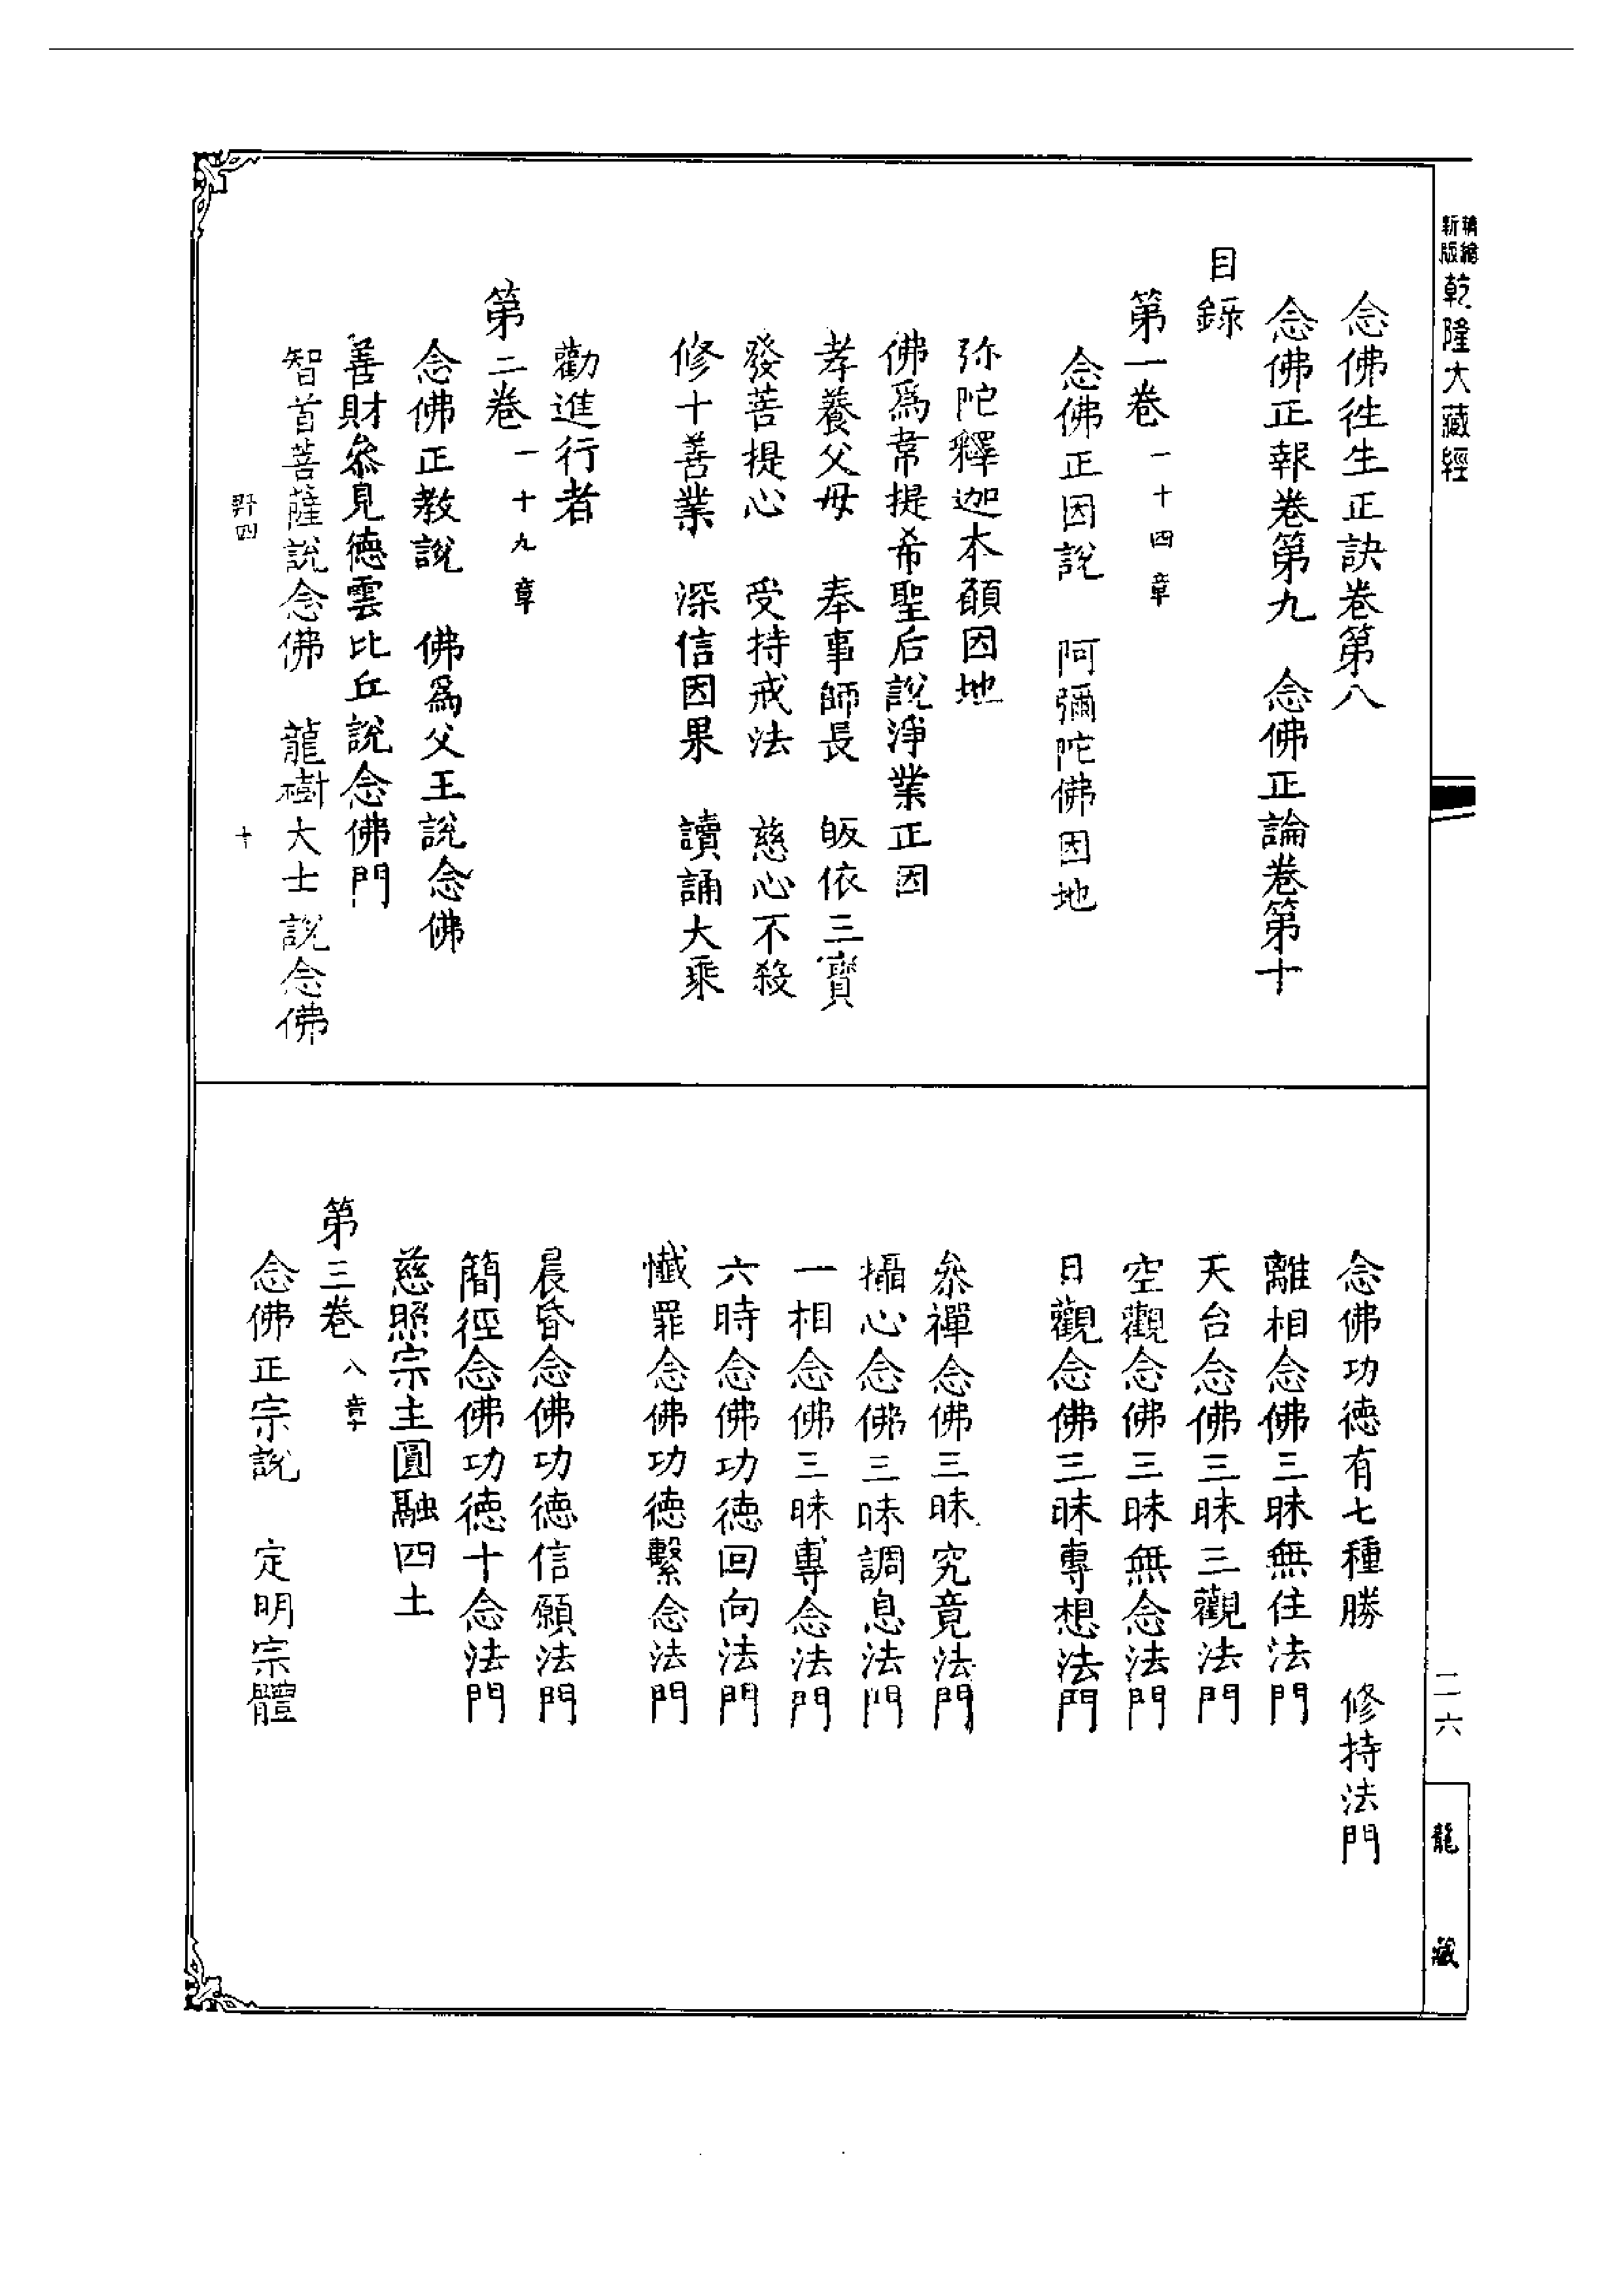 精繪新版乾隆大藏經
念佛徃生正訣卷第八
念佛正報卷第九　念佛正論卷第十
目錄
第一卷一十四章
念佛正因說　阿彌陀佛因地
弥陀釋迦本願因地
佛爲韋提希聖后說淨業正因
孝養父母　奉事師長　皈依三寶
發菩提心　受持戒法　慈心不殺
修十善業　深信因果　讀誦大乘
勸進行者
第二卷一十九章
念佛正教說　佛爲父王說念佛
善財叅見德雲比丘說念佛門
智首菩薩說念佛　龍樹大士說念佛
野四　十
念佛功德有七種勝　修持法門
離相念佛三昧無住法門
天台念佛三昧三觀法門
空觀念佛三昧無念法門
日觀念佛三昧專想法門
叅禪念佛三昧究竟法門
攝心念佛三昧調息法門
一相念佛三昧專念法門
六時念佛功德回向法門
懺罪念佛功德繫念法門
晨昏念佛功德信願法門
簡徑念佛功德十念法門
慈照宗主圓融四土
第三卷八章
念佛正宗說　定明宗體
二六
龍藏